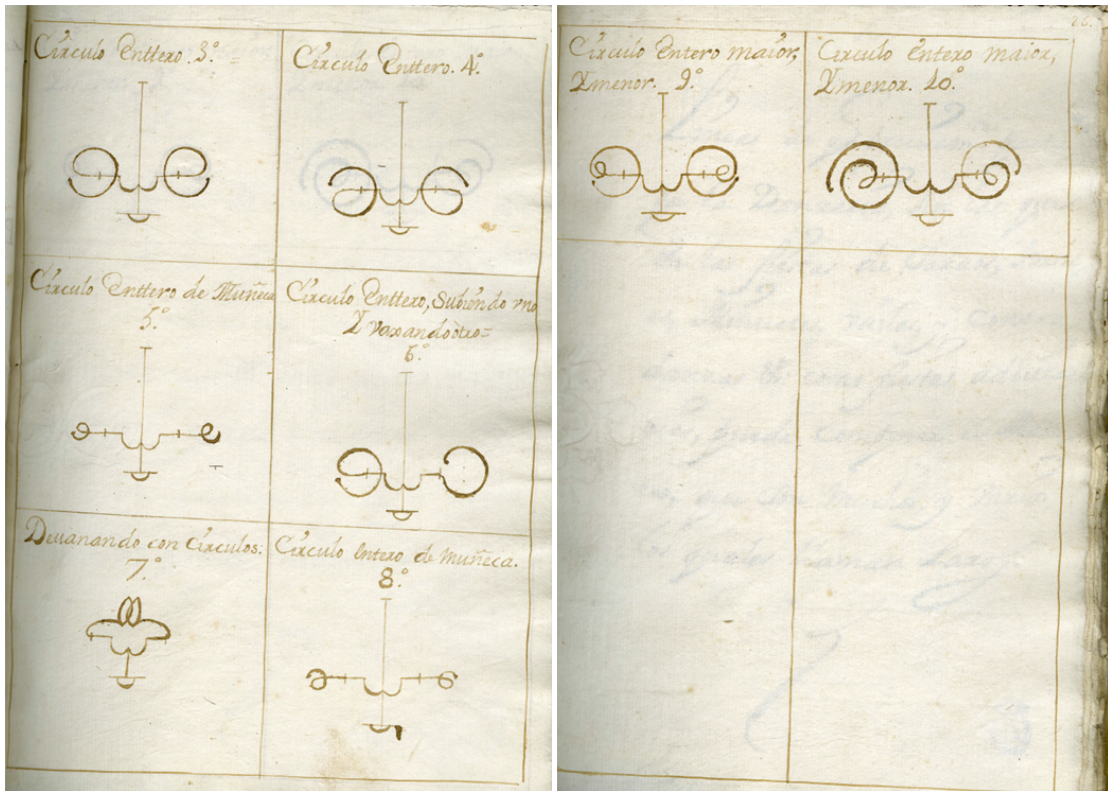 Círculo Enttero. 3.º
Círculo Enttero. 4.º
Círculo Enttero de Muñeca
5.º
Círculo Enttero, Subiendo vno
Y vaxando otro=
6.º
Deuanando con Círculos.
7.º
Círculo Entero de muñeca.
8.º
Círculo Entero maior,
Y menor. 9.º
Círculo Entero maior,
Y menor. 10.º